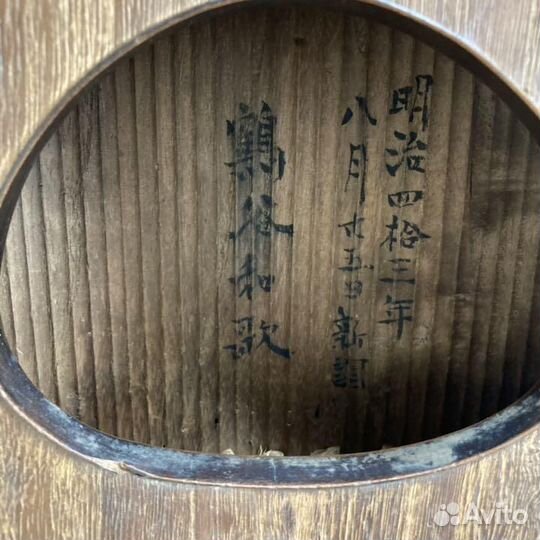 明治四拾三年
八月廿五日新調
鶴谷和歌
Avito